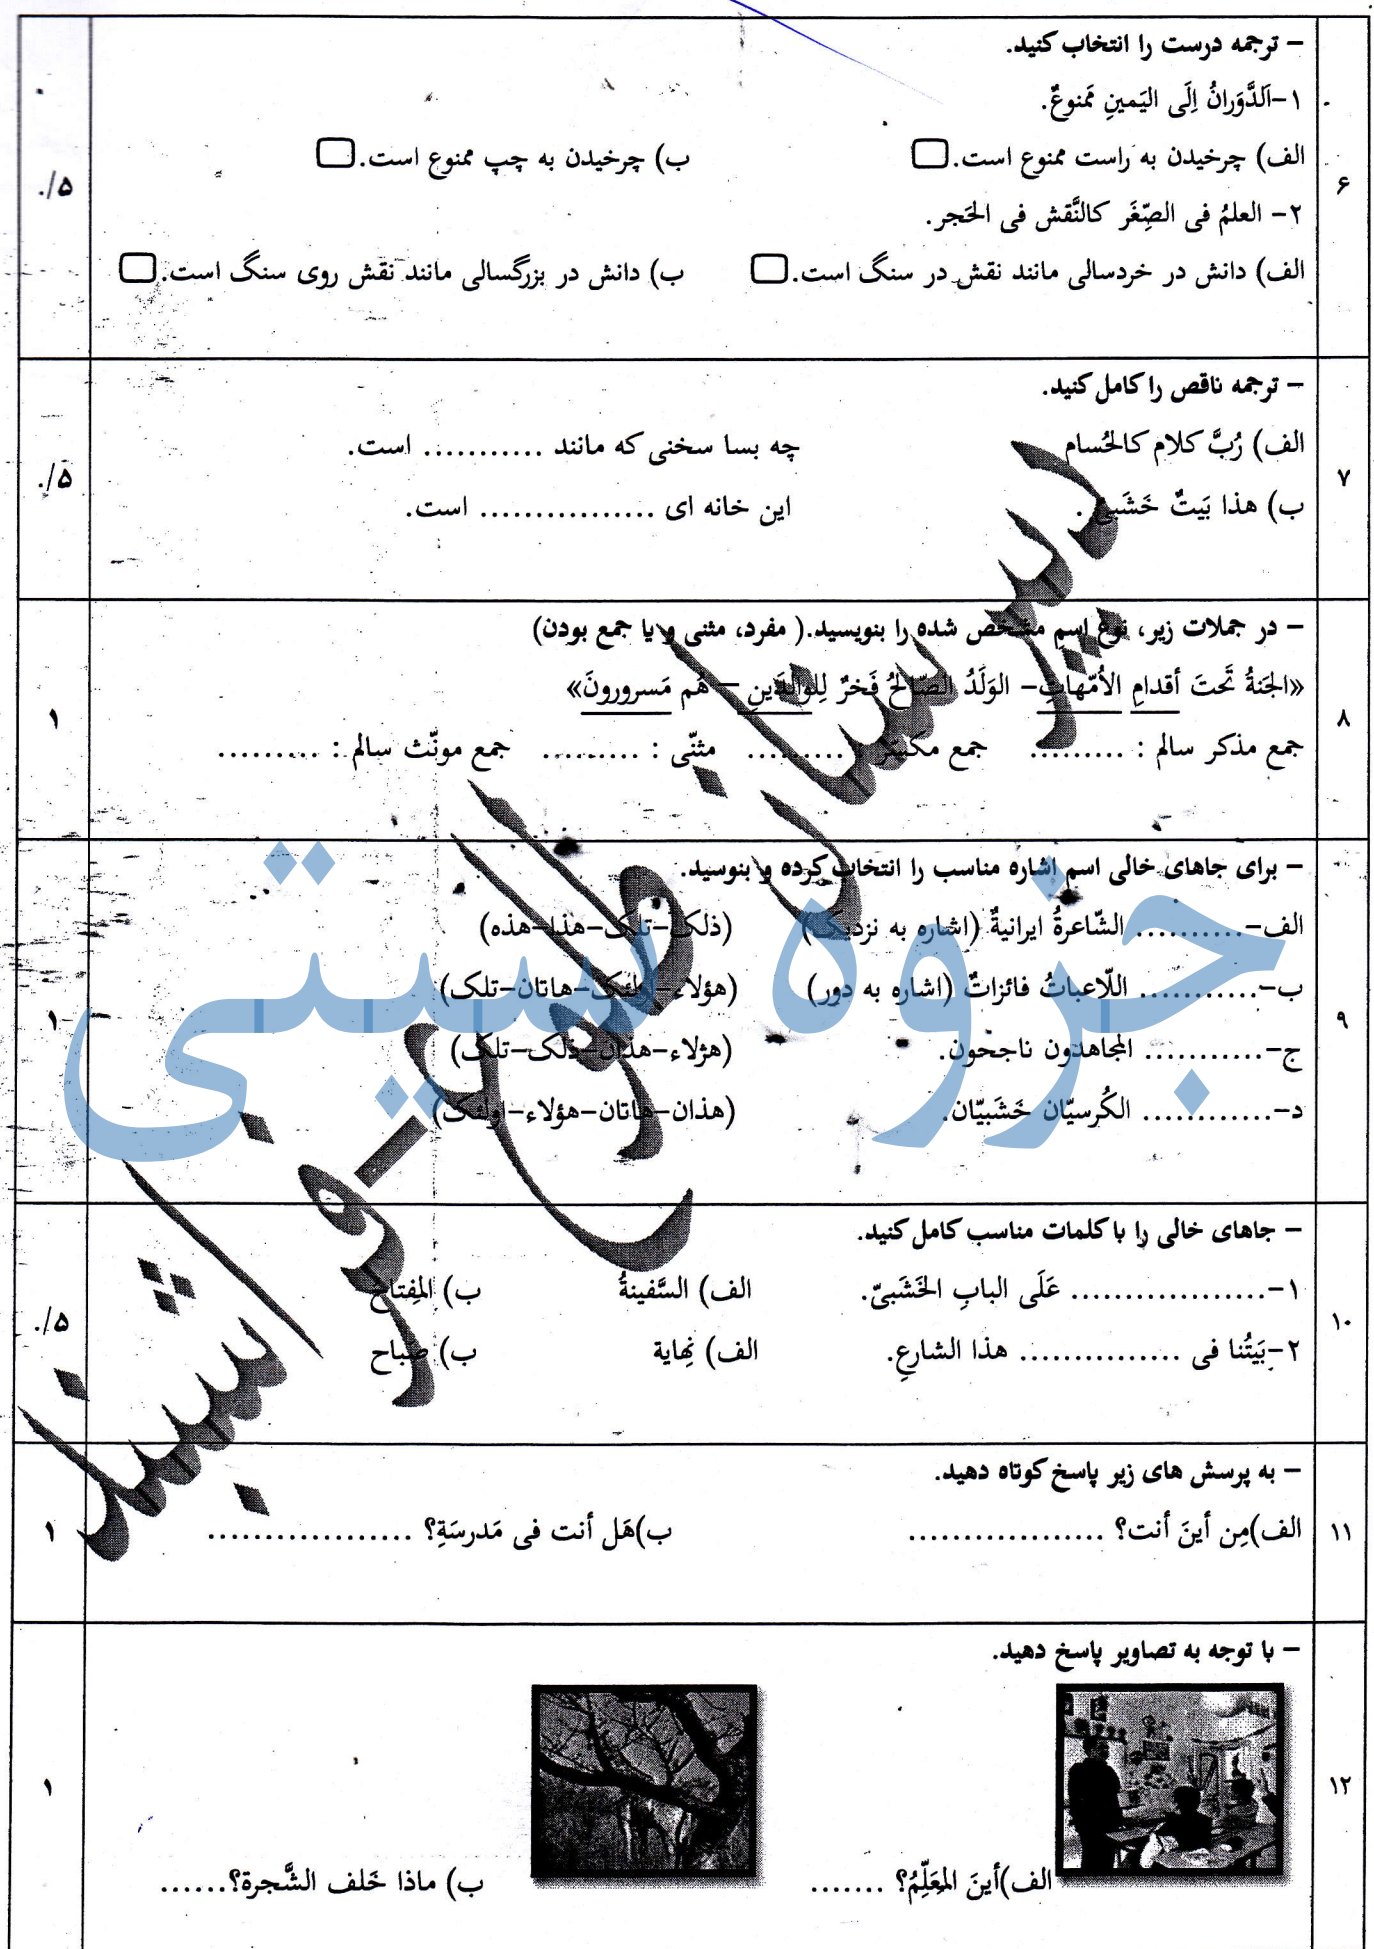 - ترجمه درست را انتخاب کنید.
۱-اَلدَّوَرانُ اِلَی الیَمینِ مَمنوعٌ.
الف) چرخیدن به راست ممنوع است. ب) چرخیدن به چپ ممنوع است.
۶
۰/۵
۲- العلمُ فی الصِّغَر کالنَّقش فی الحَجر.
الف) دانش در خردسالی مانند نقش در سنگ است. ب) دانش در بزرگسالی مانند نقش روی سنگ است.
- ترجمه ناقص را کامل کنید.
الف) رُبَّ کلام کالحُسام چه بسا سخنی که مانند ........... است.
۷
۰/۵
ب) هذا بَیتٌ خَشَبیٌ . این خانه ای ................ است.
- در جملات زیر، نوع اسم مشخص شده را بنویسید.( مفرد، مثنی و یا جمع بودن)
«الجَنةُ تَحتَ أقدامِ الأمّهاتِ- الوَلَدُ الصّالحُ فَخرٌ لِلوالدَینِ – هُم مَسرورونَ»
۸
۱
جمع مذکر سالم : ......... جمع مکسّر : ......... مثنّی : ......... جمع مونّث سالم : ..........
- برای جاهای خالی اسم اشاره مناسب را انتخاب کرده و بنوسید.
الف-.......... الشّاعرةُ ایرانیةٌ (اشاره به نزدیک) (ذلک-تلک-هذا-هذه)
ب-........... اللّاعباتُ فائزاتٌ (اشاره به دور) (هؤلاء-اولئک-هاتان-تلک)
۹
۱
ج-........... المجاهدون ناجحون. (هژلاء-هذان-ذلک-تلک)
د-............ الکُرسیّان خَشَبیّان. (هذان-هاتان-هؤلاء-اولئک)
- جاهای خالی را با کلمات مناسب کامل کنید.
۱-.................. عَلَی البابِ الخَشَبیّ. الف) السَّفینةُ ب) المِفتاحُ
۱۰
۰/۵
۲-بَیتُنا فی ............... هذا الشارعِ. الف) نِهایة ب) صَباح
- به پرسش های زیر پاسخ کوتاه دهید.
۱۱
۱
الف)مِن أینَ أنت؟ .................. ب)هَل أنت فی مَدرسَةِ؟ ...................
- با توجه به تصاویر پاسخ دهید.
۱۲
۱
الف)أینَ المُعَلِّمُ؟ ....... ب) ماذا خَلف الشَّجرة؟......
جزوه سیتی